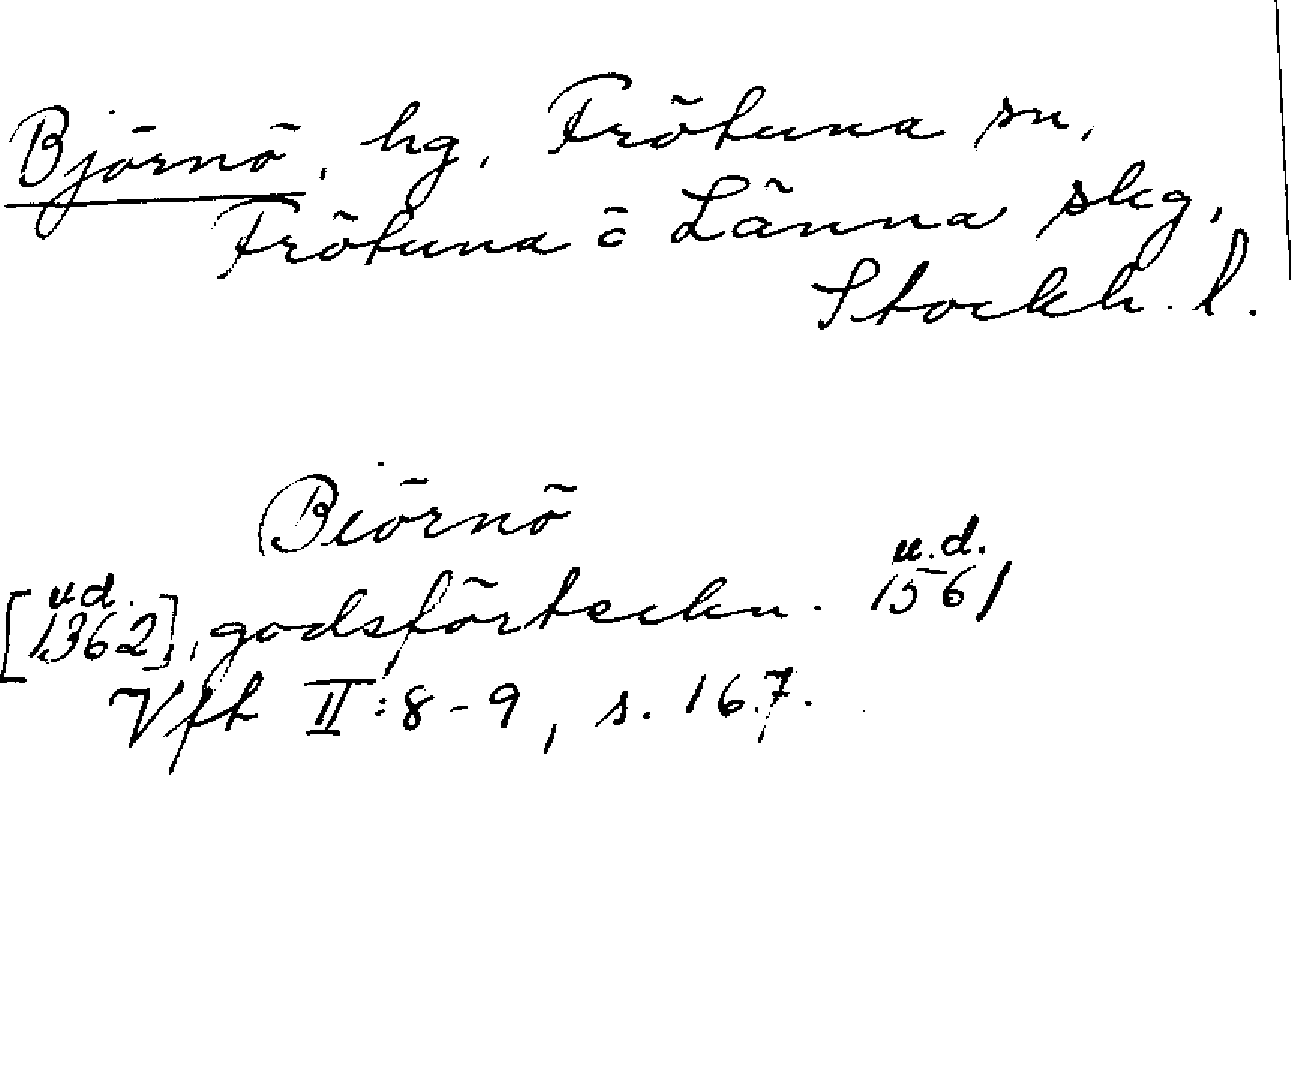 Björnö, hg, Frötuna sn,
Frötuna o Länna skg,
Stockh. l.
Biörnö
[u.d. 1362], godsförteckn. u.d. 1561
Vft II:8-9, s. 167.